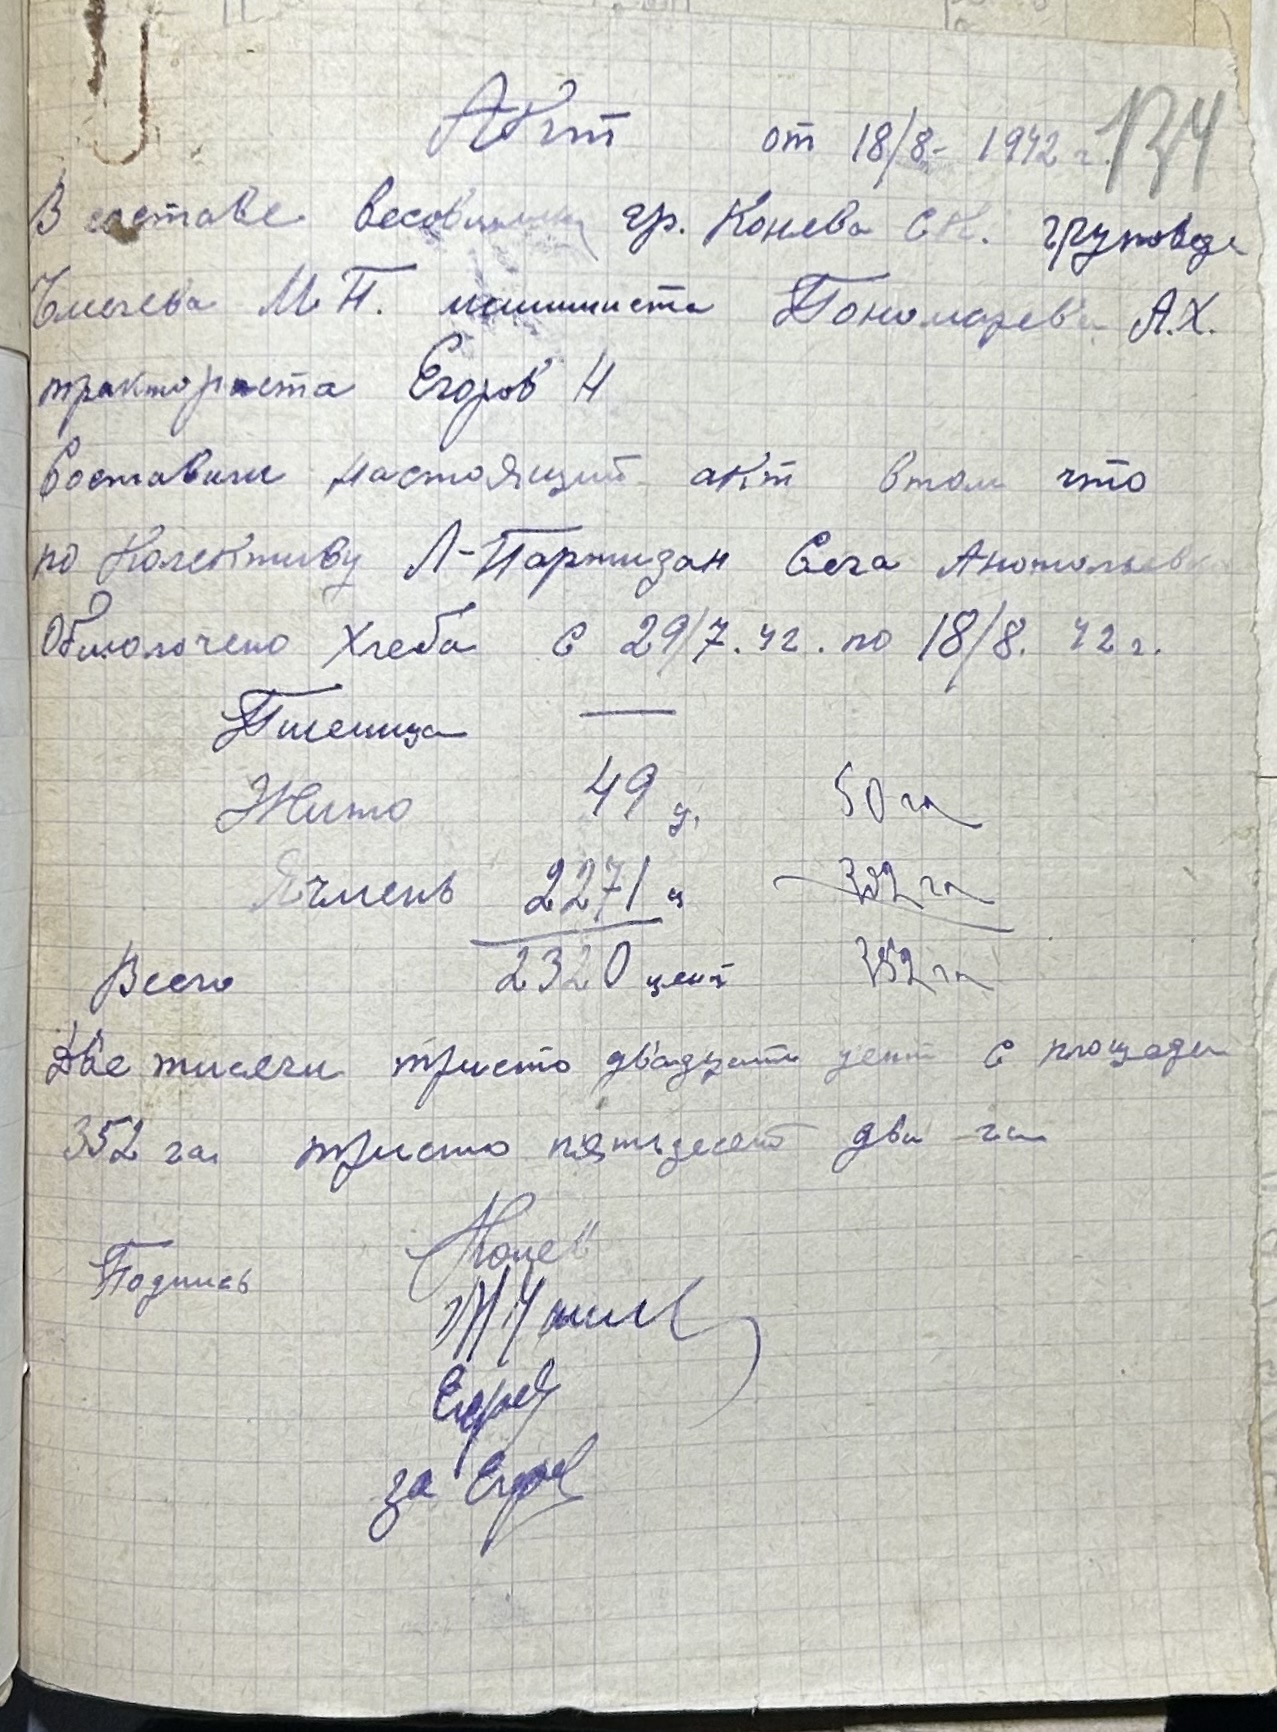 Акт от 18/8- 1942 г. 134
В составе весовщика гр. Конева С.К. груповода
М.П. машиниста Пономарева А.Х.
тракториста Егоров Н
Составили настоящий акт втом что
по Колективу Л-Партизан Села Анотольевка
Обмолочено Хлеба с 29/7. 42. по 18/8. 42 г.
Пшеница —
Жито 49 ц. 50 га
Ячмень 2271 ц 302 га
Всего 2320 цент 352 га
Две тисячи тристо двадцать цент с площади
352 га. тристо пятьдесят два га
Подпись Конев
Егоров
за Егоров